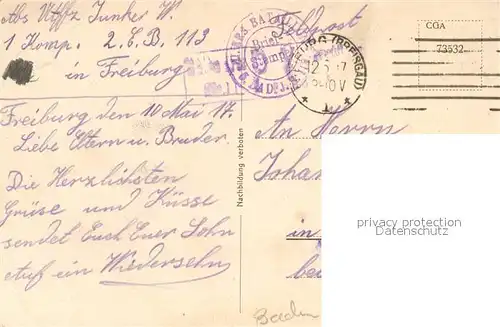 Abs Utffz Junker W.
1 Komp. 2. E. B. 113
in Freiburg
Feldpost
BATAILL
Brief
FREIBURG (BREISGAU)
CGA
73532
Freiburg den 10 Mai 17.
Liebe Eltern u. Bruder.
Die Herzlichsten
Grüse und Küsse
sendet Euch Euer Sohn
Auf ein Wiedersehn
Nachbildung verboten
An Herrn
Joha
in
bei
Baden
privacy protection
Datenschutz